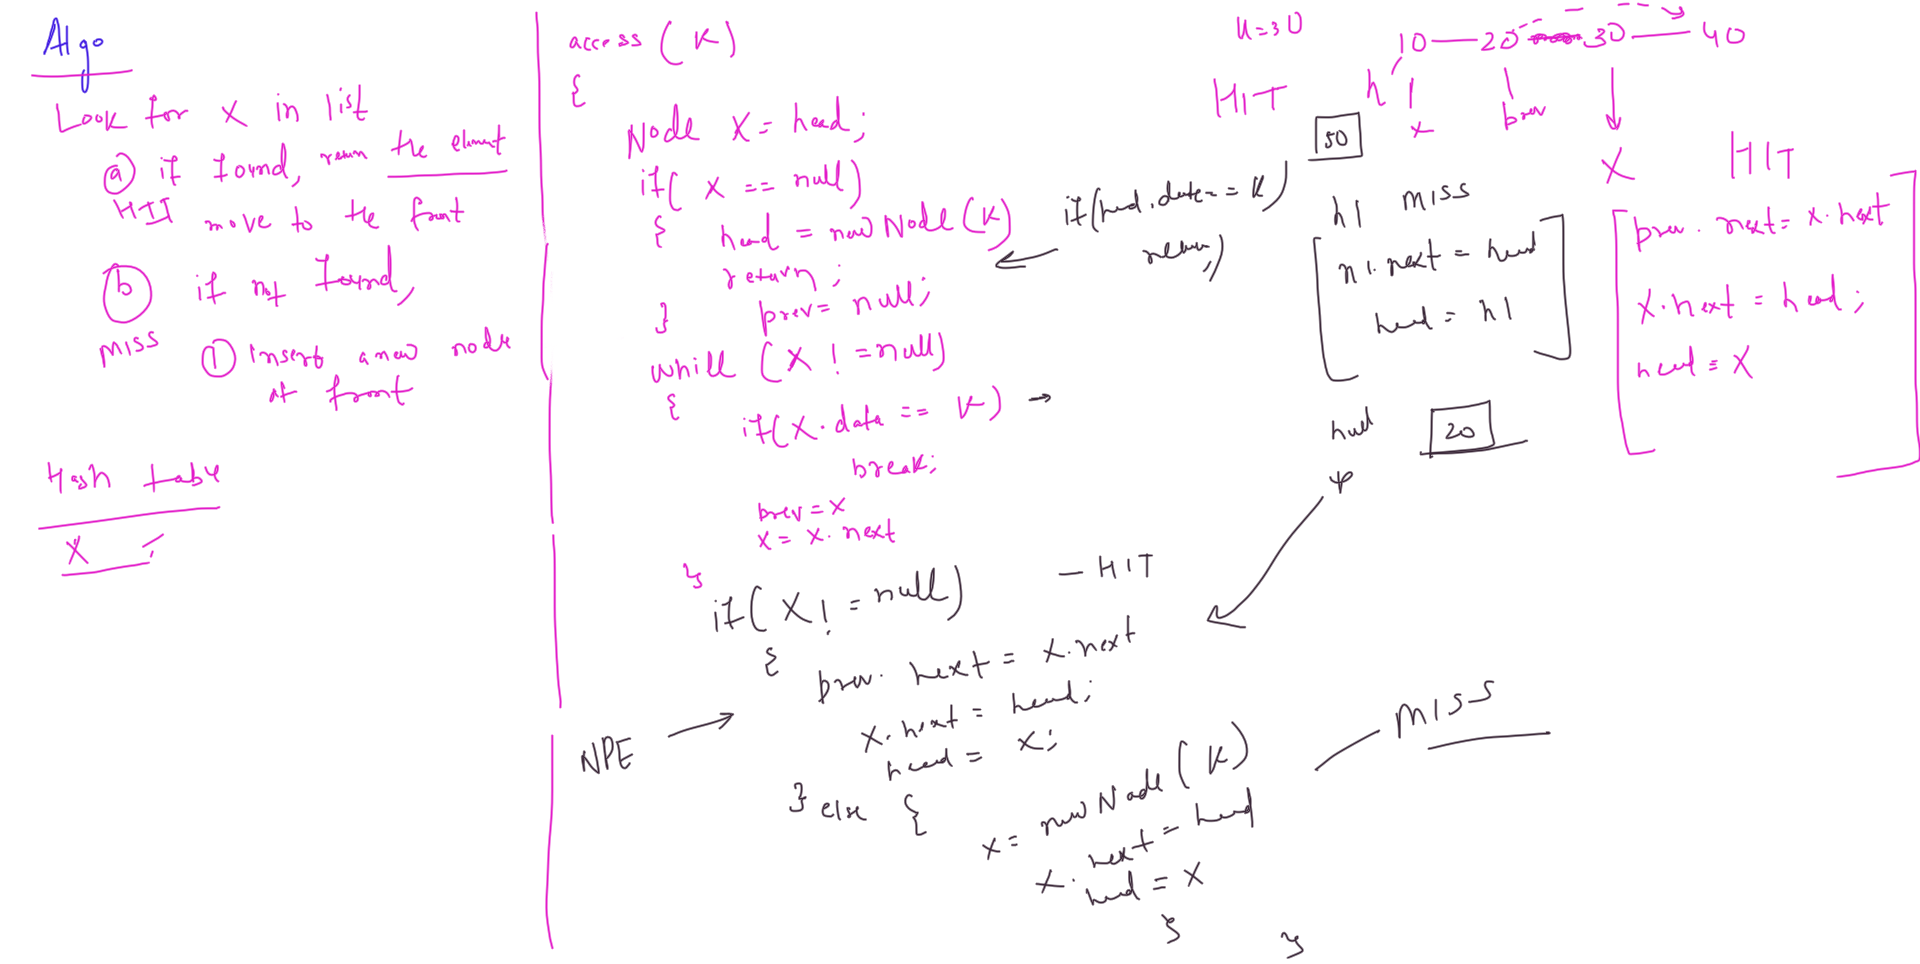 Algo
Look for X in list
(a) if found, return the element
HIT move to the front
(b) if not found,
MISS
(1) insert a new node
at front
Hash table
X :
access (K)
{
Node X = head;
if( X == null)
{ head = new Node (K)
return ;
} prev = null;
whill (X != null)
{
if(X.data == K) →
break;
prev = X
X = X.next
}
if( X != null) - HIT
{ prev. next = X.next
X.next = head;
head = X;
} else {
X = new Node (K)
X. next = head
head = X
}
}
NPE →
MISS
if(head.data == K)
return;
K=30
HIT
50
h1 MISS
n1.next = head
head = h1
head 20
φ
10 — 20 30 — 40
h
X
prev
X HIT
prev. next = X.next
X.next = head;
head = X